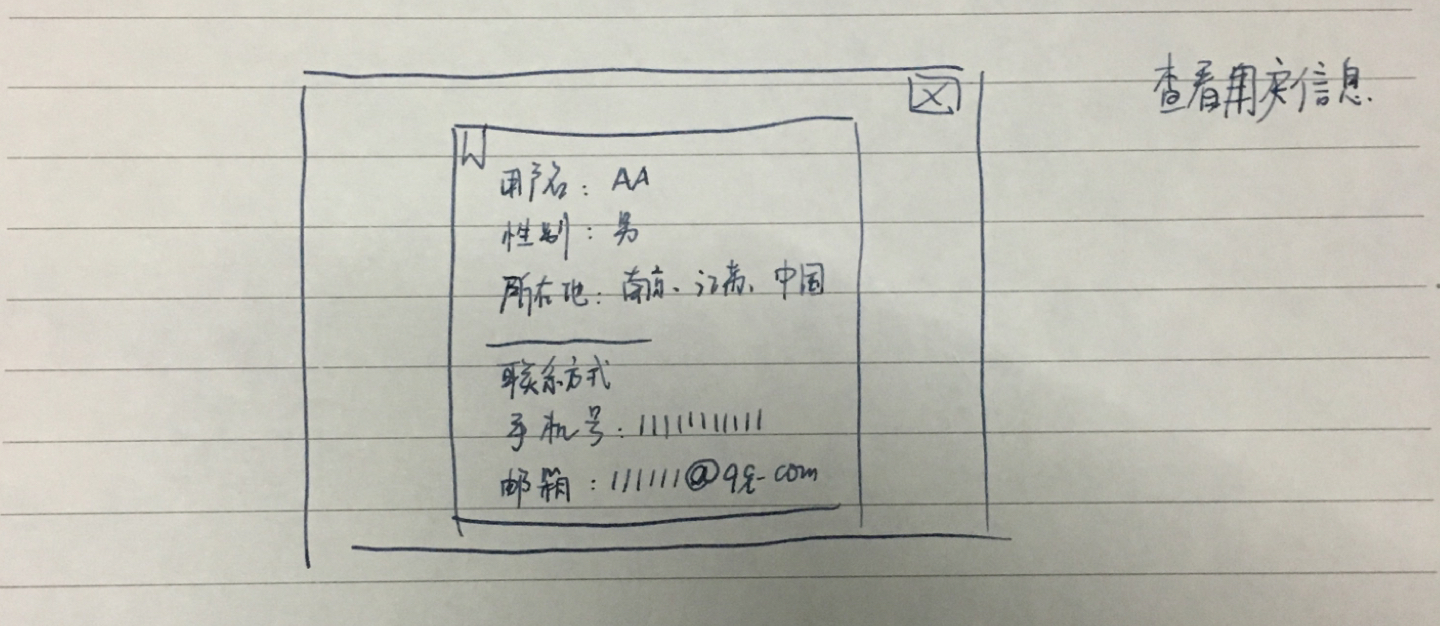 查看用户信息
用户名：AA
性别：男
所在地：南京、江苏、中国
联系方式
手机号：11111111111
邮箱：111111@qq.com